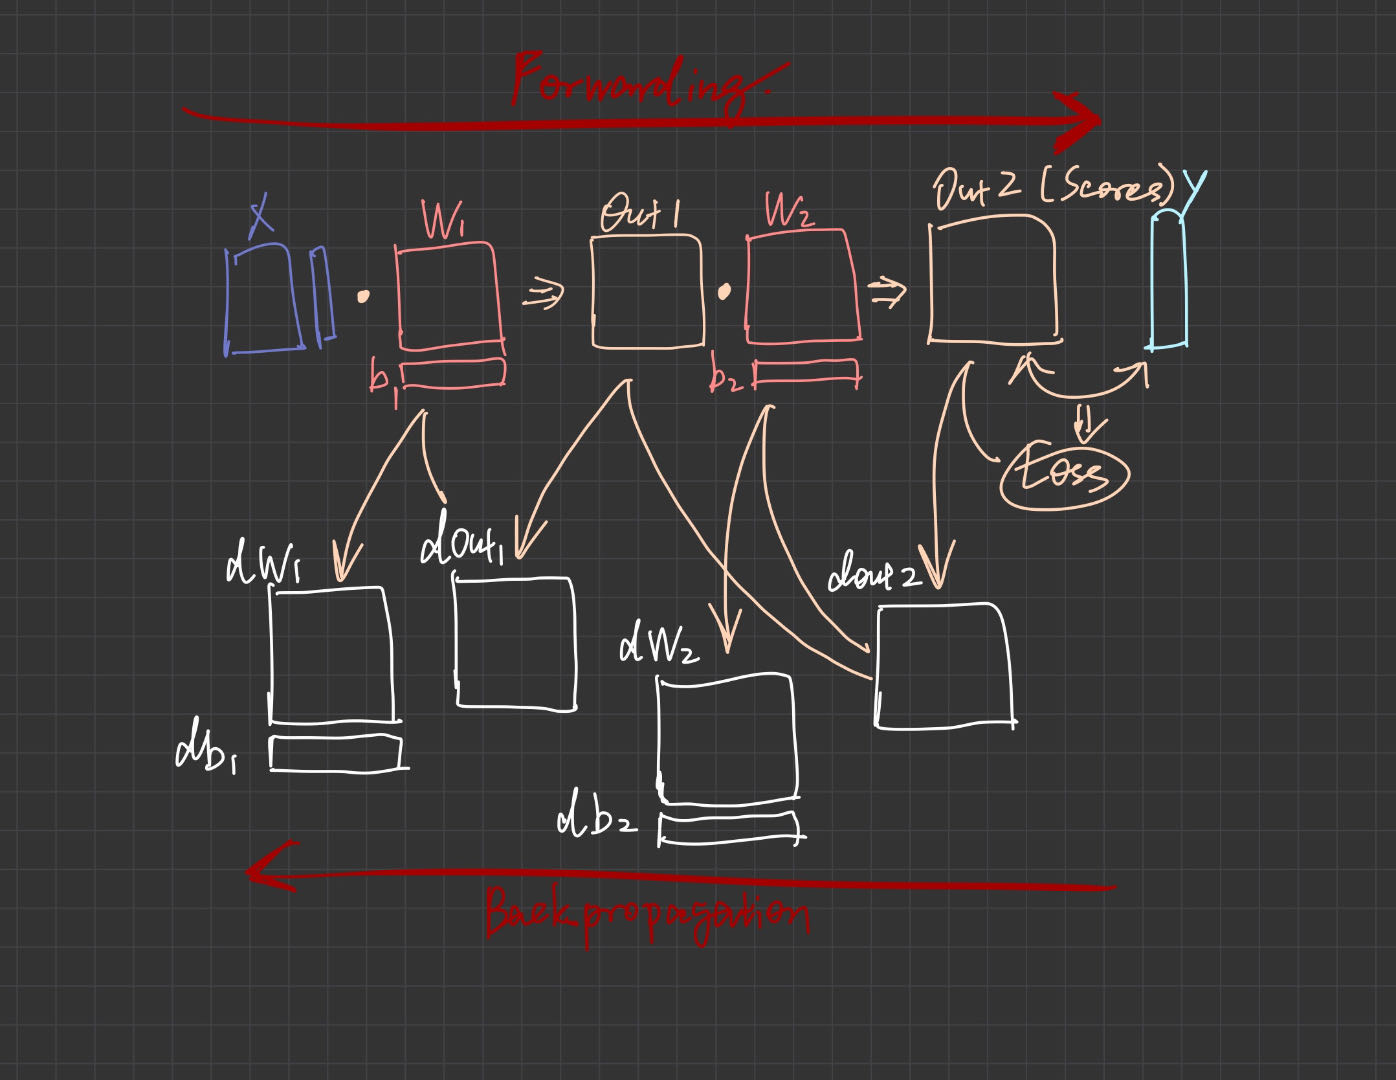 Forwarding
X
W1
Out 1
W2
Out 2 (Scores)
Y
b1
b2
Loss
dW1
dOut1
dout2
dW2
db1
db2
Backpropagation